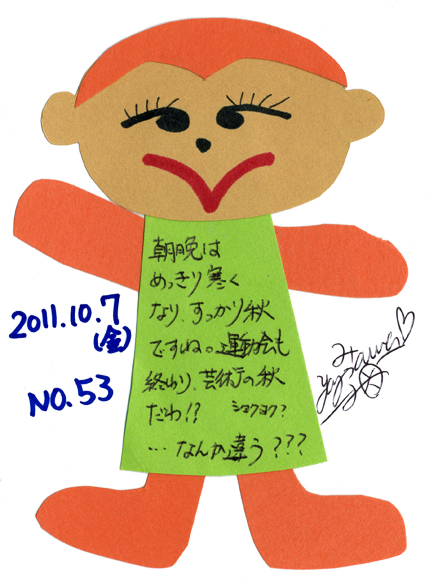 朝晩は
めっきり寒く
なり、すっかり秋
ですね。運動会も
終わり、芸術の秋
だわ!? ショクヨク?
…なんか違う???
2011.10.7
(金)
NO.53